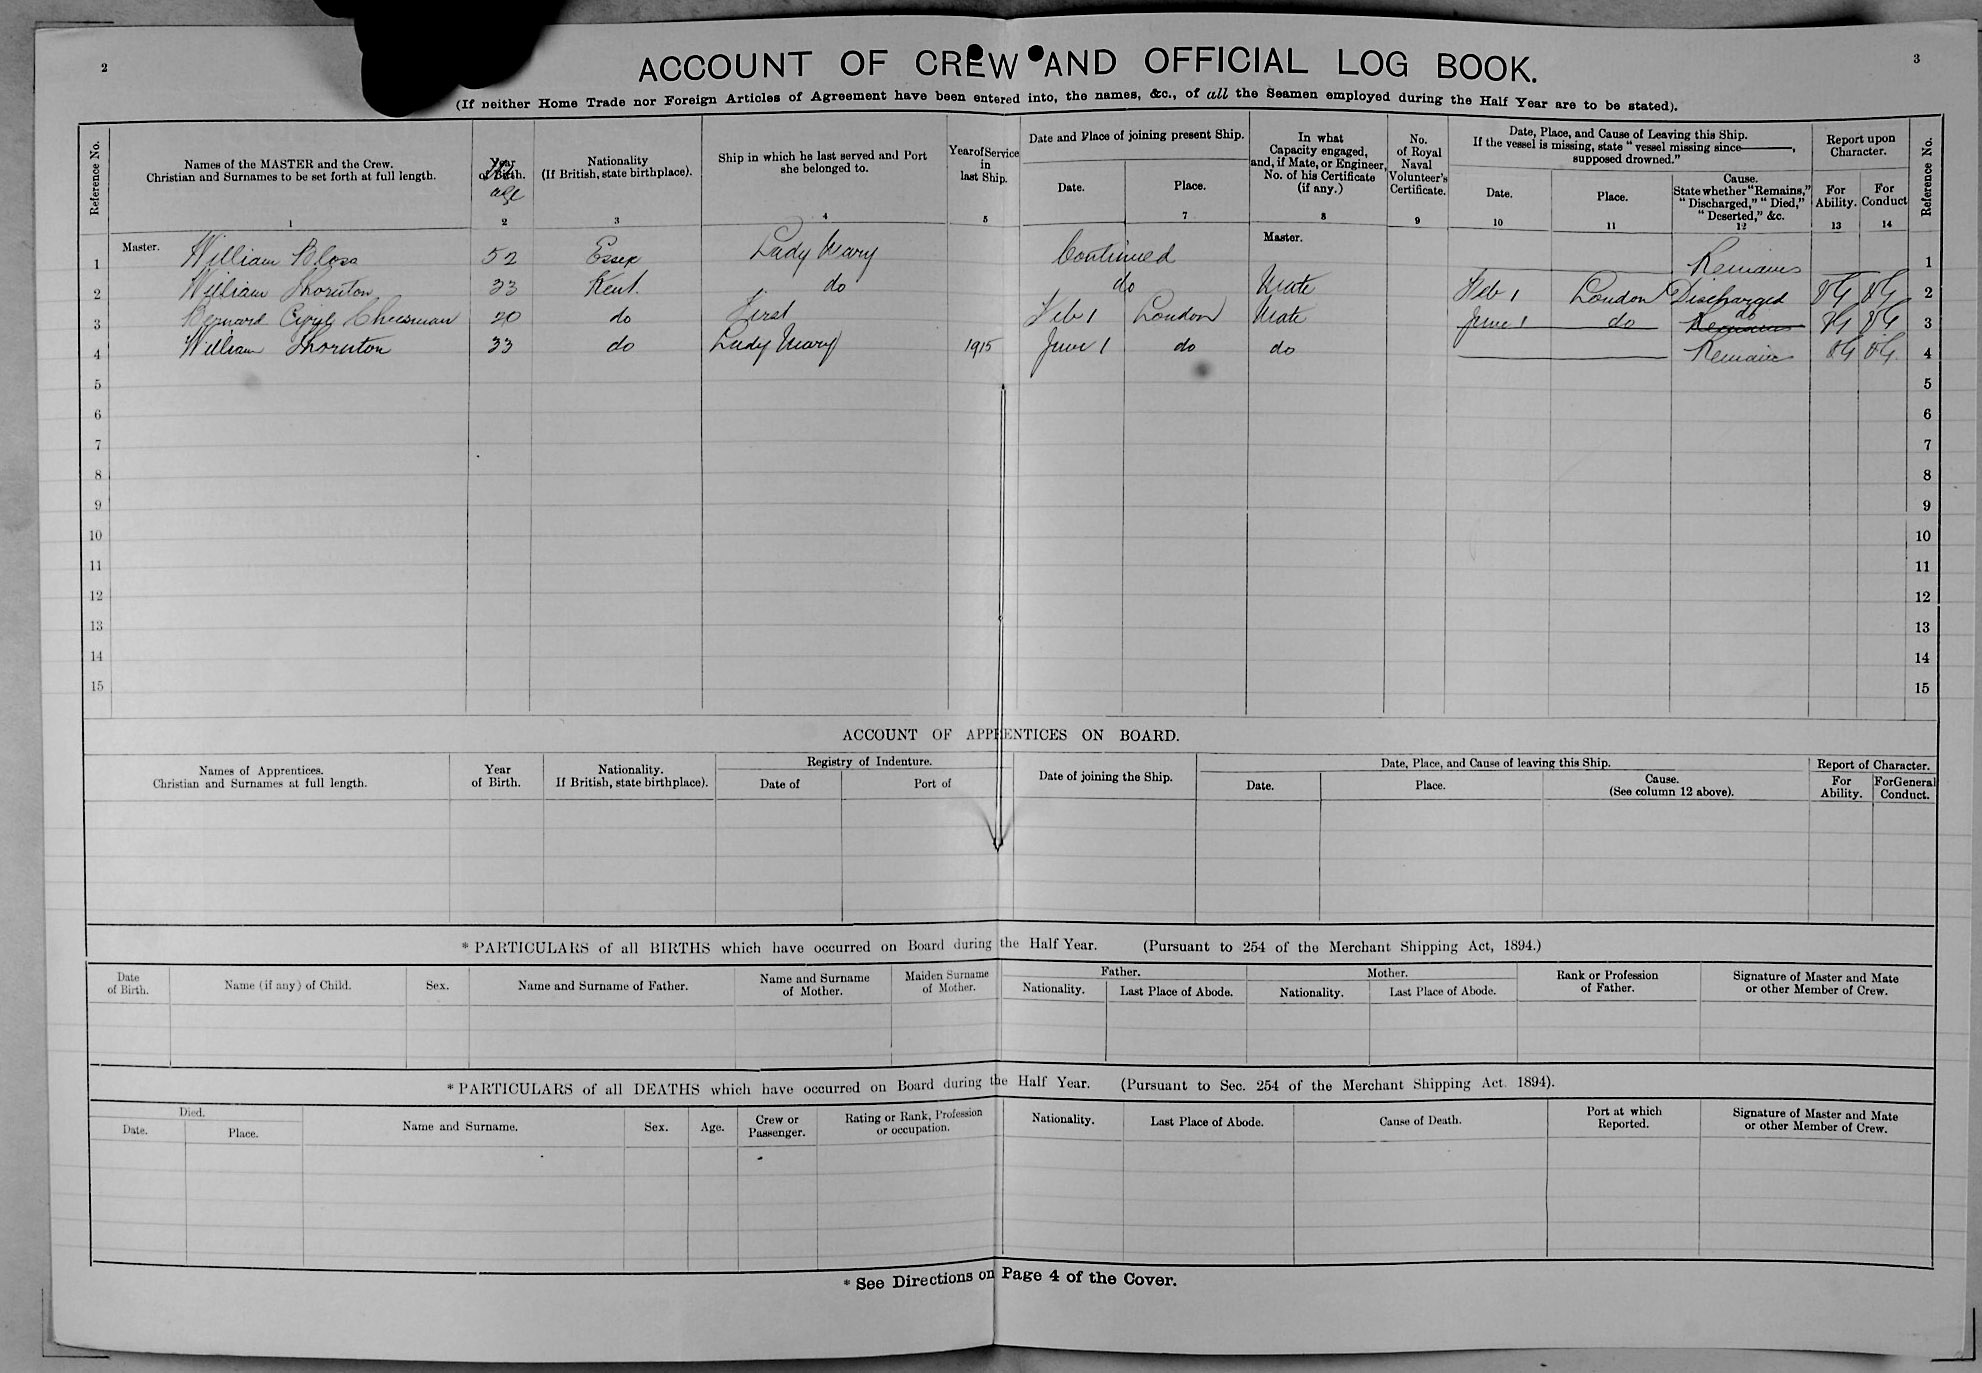 2
3
ACCOUNT OF CREW AND OFFICIAL LOG BOOK.
(If neither Home Trade nor Foreign Articles of Agreement have been entered into, the names, &c., of all the Seamen employed during the Half Year are to be stated).
Reference No.
Names of the MASTER and the Crew.
Christian and Surnames to be set forth at full length.
1
Year
of Birth.
age
2
Nationality
(If British, state birthplace).
3
Ship in which he last served and Port
she belonged to.
4
Year of Service
in
last Ship.
5
Date and Place of joining present Ship.
Date.
Place.
7
In what
Capacity engaged,
and, if Mate, or Engineer,
No. of his Certificate
(if any.)
8
No.
of Royal
Naval
Volunteer's
Certificate.
9
Date, Place, and Cause of Leaving this Ship.
If the vessel is missing, state "vessel missing since———,
supposed drowned."
Date.
10
Place.
11
Cause.
State whether "Remains,"
"Discharged," "Died,"
"Deserted," &c.
12
Report upon
Character.
For
Ability.
13
For
Conduct
14
Reference No.
1 Master. William Bloss 52 Essex Lady Mary Continued Master. Remains 1
2 William Thornton 33 Kent. do do Mate Feb 1 London Discharged VG VG 2
3 Bernard Cyril Cheesman 20 do First Feb 1 London Mate June 1 do Remains do VG VG 3
4 William Thornton 33 do Lady Mary 1915 June 1 do do Remains VG VG 4
5 5
6 6
7 7
8 8
9 9
10 10
11 11
12 12
13 13
14 14
15 15
ACCOUNT OF APPRENTICES ON BOARD.
Names of Apprentices.
Christian and Surnames at full length.
Year
of Birth.
Nationality.
If British, state birthplace).
Registry of Indenture.
Date of
Port of
Date of joining the Ship.
Date, Place, and Cause of leaving this Ship.
Date.
Place.
Cause.
(See column 12 above).
Report of Character.
For
Ability.
For General
Conduct.
* PARTICULARS of all BIRTHS which have occurred on Board during the Half Year. (Pursuant to 254 of the Merchant Shipping Act, 1894.)
Date
of Birth.
Name (if any) of Child.
Sex.
Name and Surname of Father.
Name and Surname
of Mother.
Maiden Surname
of Mother.
Father.
Nationality.
Last Place of Abode.
Mother.
Nationality.
Last Place of Abode.
Rank or Profession
of Father.
Signature of Master and Mate
or other Member of Crew.
* PARTICULARS of all DEATHS which have occurred on Board during the Half Year. (Pursuant to Sec. 254 of the Merchant Shipping Act. 1894).
Died.
Date.
Place.
Name and Surname.
Sex.
Age.
Crew or
Passenger.
Rating or Rank, Profession
or occupation.
Nationality.
Last Place of Abode.
Cause of Death.
Port at which
Reported.
Signature of Master and Mate
or other Member of Crew.
* See Directions on Page 4 of the Cover.